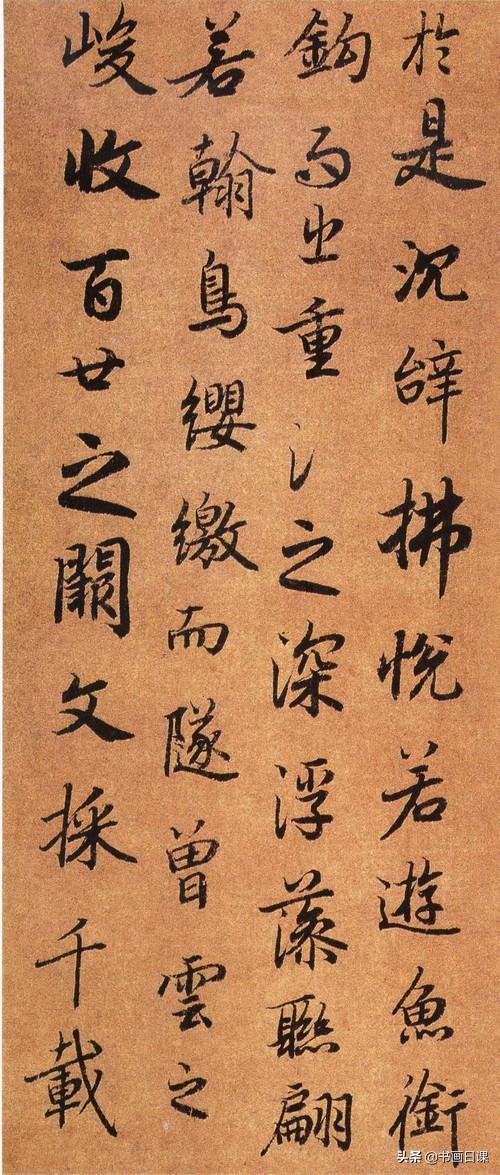 於是沉辝拂悅若遊魚銜
鈎而出重氵之深浮藻聯翩
若翰鳥纓繳而隧曾雲之
峻收百廿之闕文採千載
头条 @书画日课